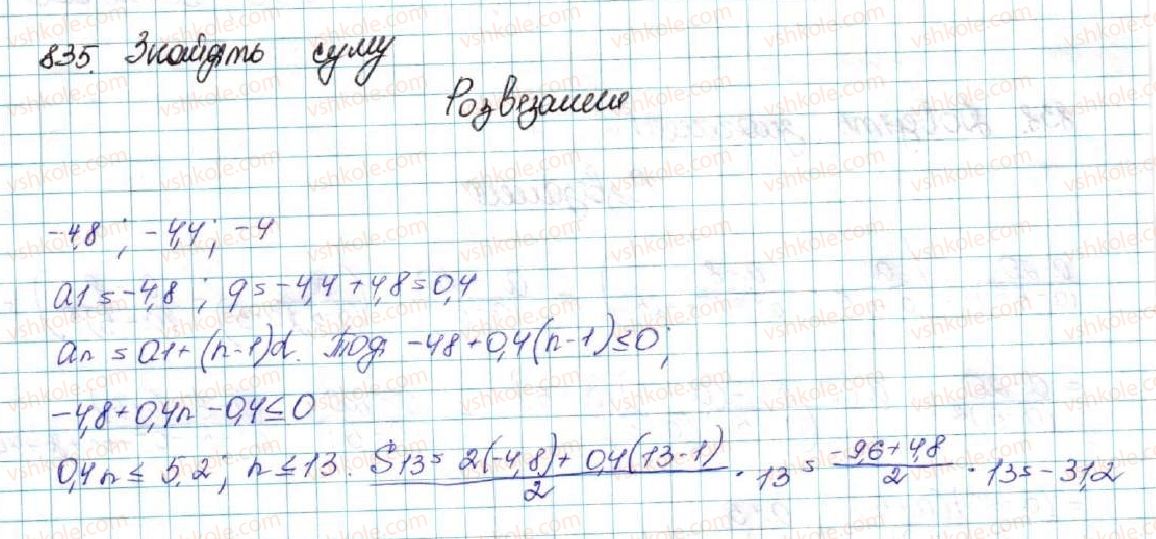 835. Знайдть суму
Розвезання
-4,8 ; -4,4 ; -4
a1 = -4,8 ; d = -4,4 + 4,8 = 0,4
an = a1 + (n-1)d. Тоді -4,8 + 0,4(n-1) ≤ 0;
-4,8 + 0,4n - 0,4 ≤ 0
0,4n ≤ 5,2 ; n ≤ 13. S13 = 2(-4,8) + 0,4(13-1) / 2 · 13 = -9,6 + 4,8 / 2 · 13 = -31,2